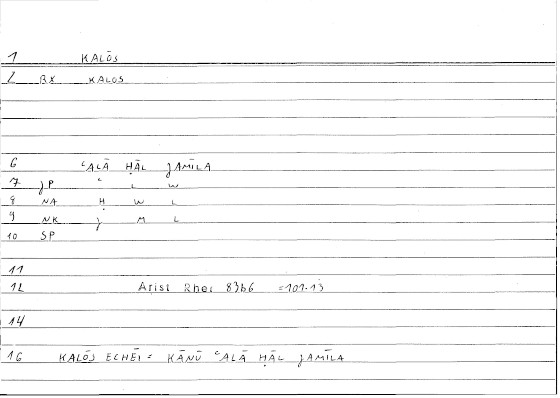 1 KALŌS
2 BX KALOS
6 ʿALĀ ḤĀL JAMĪLA
7 JP ʿ L W
8 NA Ḥ W L
9 NK J M L
10 SP
11
12 Arist Rhet 83b6 =101.13
14
16 KALŌS ECHĒI = KĀNŪ ʿALĀ ḤĀL JAMĪLA